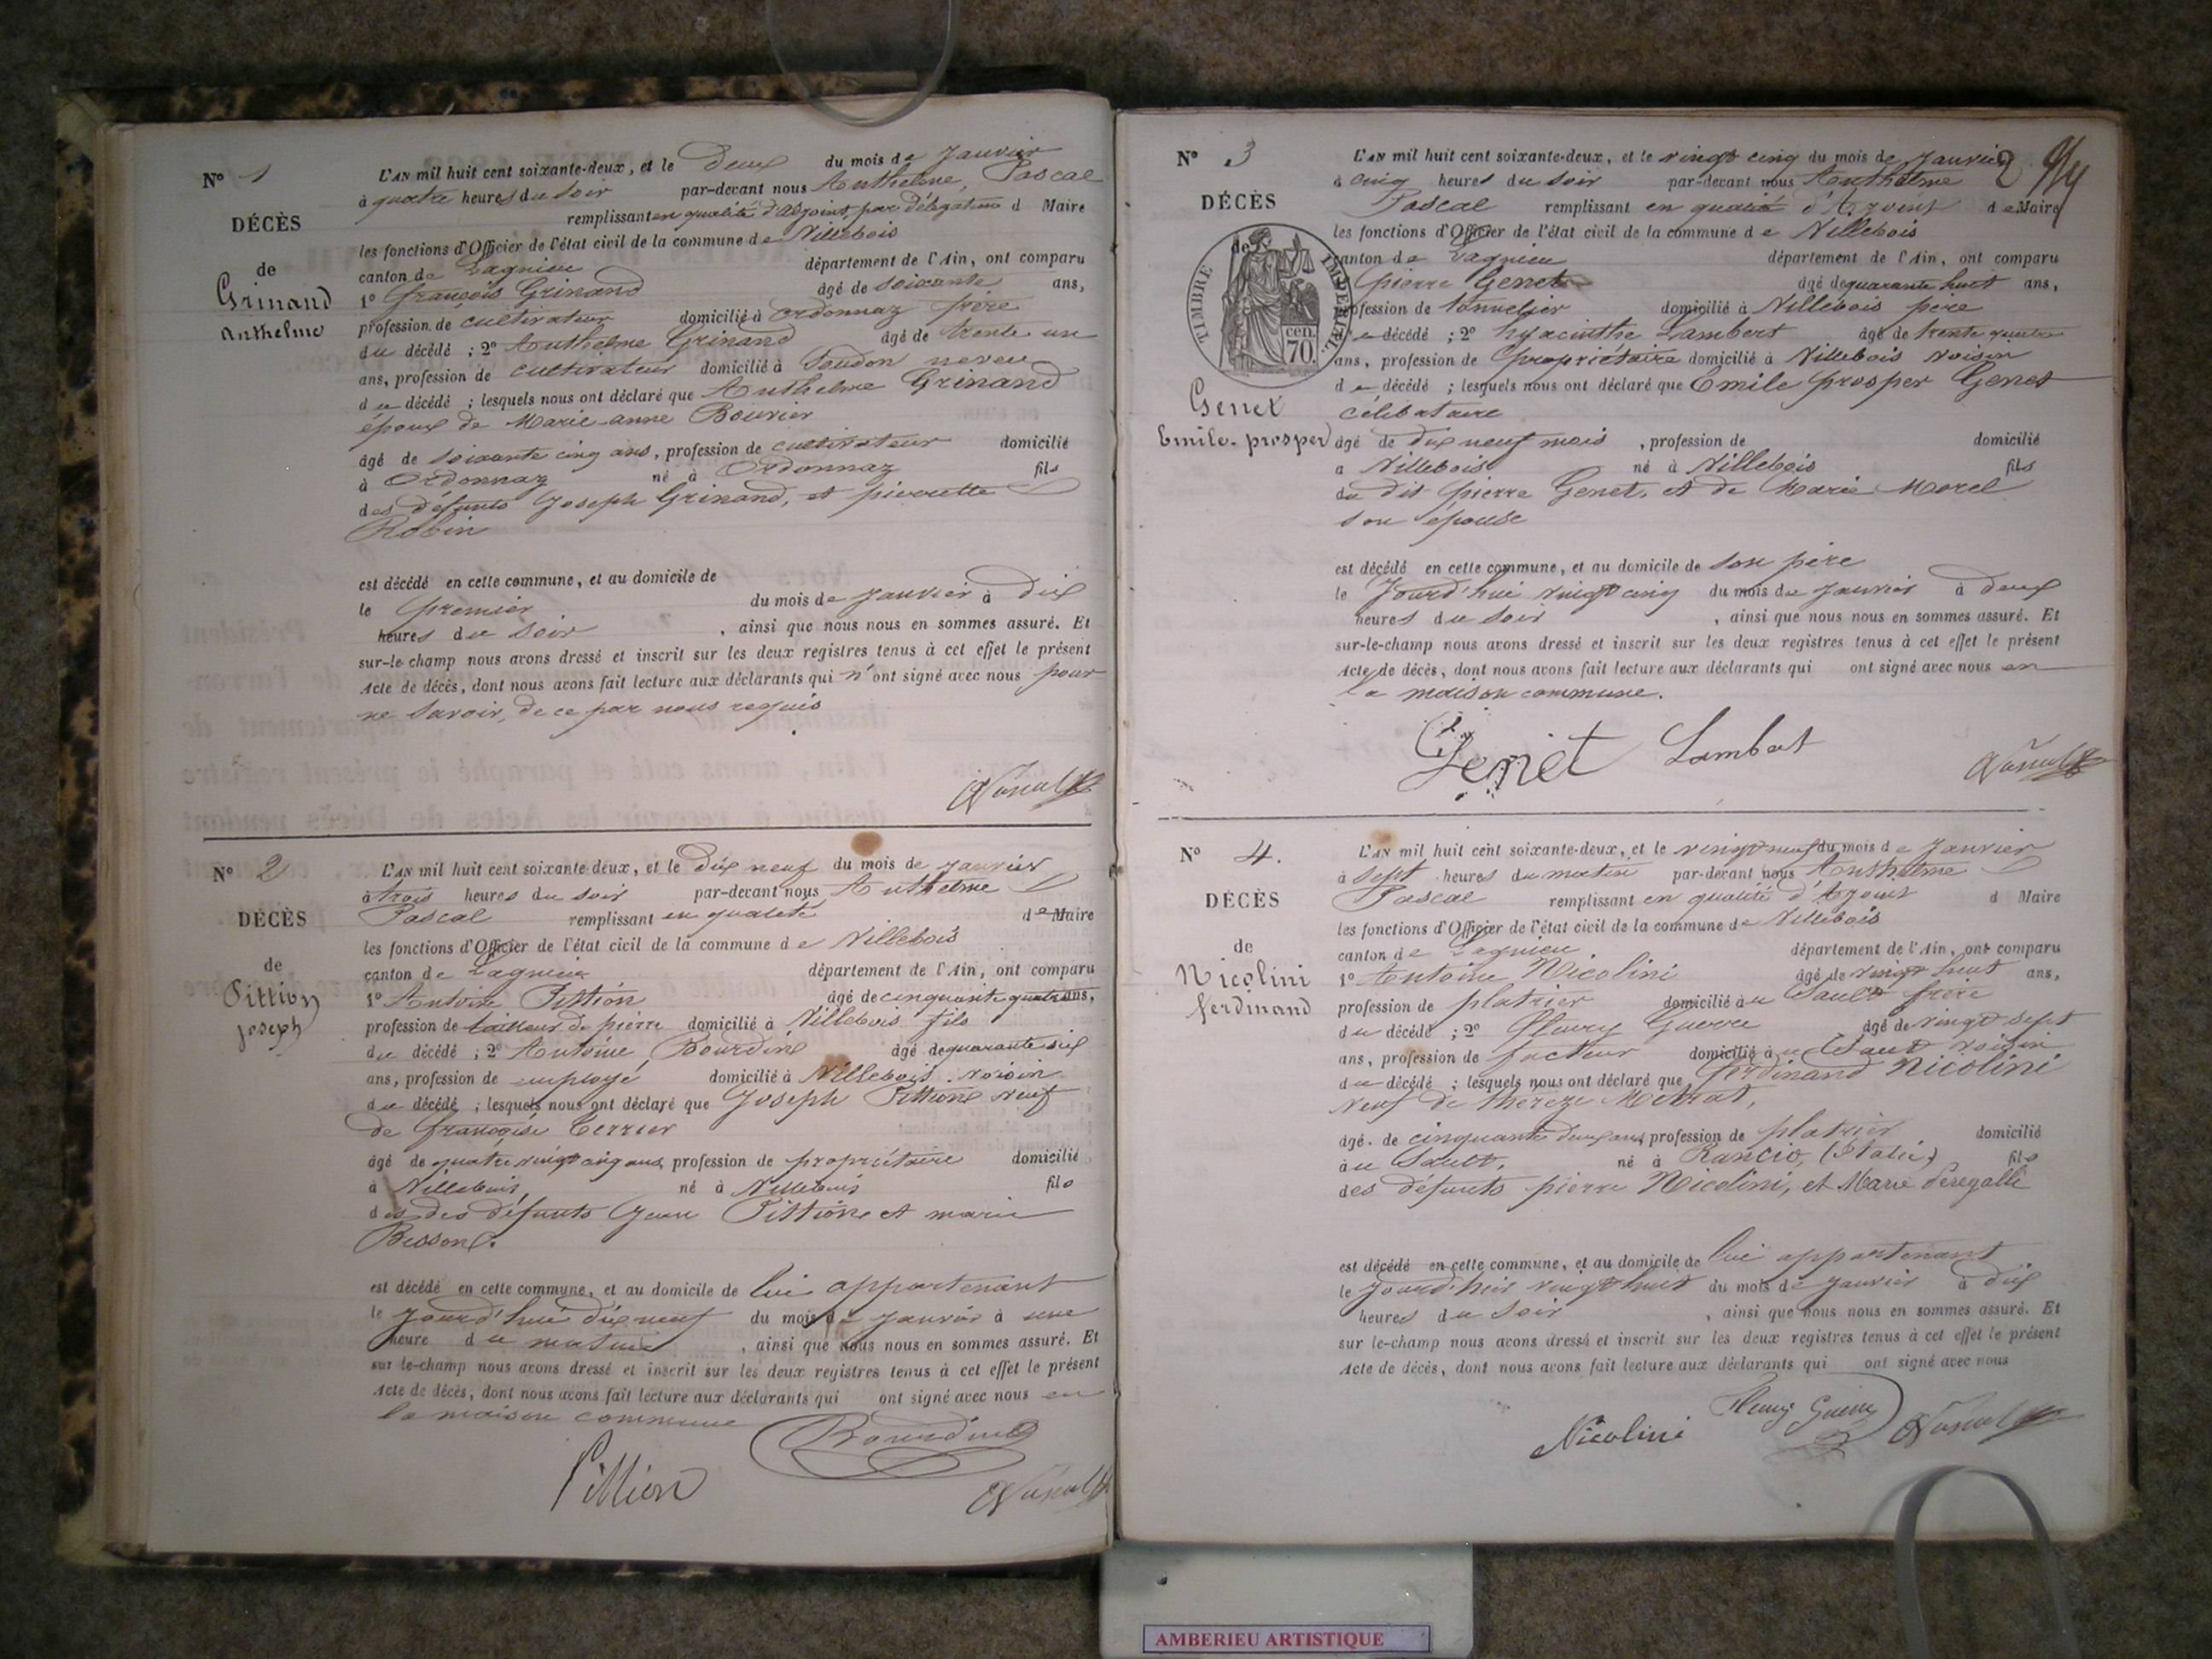 N° 1
DÉCÈS
de
Grinand
Anthelme
L'AN mil huit cent soixante-deux, et le Deux du mois de Janvier
à quatre heures du soir par-devant nous Anthelme, Pascal
remplissant en qualité d'adjoint, par délégation d Maire
les fonctions d'Officier de l'état civil de la commune de Villebois
canton de Lagnieu département de l'Ain, ont comparu
1° François Grinand âgé de soixante ans,
profession de cultivateur domicilié à Ordonnaz frère
du décédé ; 2° Anthelme Grinand âgé de trente un
ans, profession de cultivateur domicilié à Soudon neveu
du décédé ; lesquels nous ont déclaré que Anthelme Grinand
époux de Marie-anne Bouvier
âgé de soixante cinq ans, profession de cultivateur domicilié
à Ordonnaz né à Ordonnaz fils
des défunts Joseph Grinand, et pierrette
Robin
est décédé en cette commune, et au domicile de
le premier du mois de Janvier à dix
heures du soir , ainsi que nous nous en sommes assuré. Et
sur-le-champ nous avons dressé et inscrit sur les deux registres tenus à cet effet le présent
Acte de décès, dont nous avons fait lecture aux déclarants qui n'ont signé avec nous pour
ne savoir, de ce par nous requis
N° 2
DÉCÈS
de
Pittion
Joseph
L'AN mil huit cent soixante-deux, et le dix neuf du mois de Janvier
à trois heures du soir par-devant nous Anthelme
Pascal remplissant en qualité de Maire
les fonctions d'Officier de l'état civil de la commune de Villebois
canton de Lagnieu département de l'Ain, ont comparu
1° Antoine Pittion âgé de cinquante quatre ans,
profession de tailleur de pierre domicilié à Villebois fils
du décédé ; 2° Antoine Bourdin âgé de quarante six
ans, profession de employé domicilié à Villebois voisin
du décédé ; lesquels nous ont déclaré que Joseph Pittion veuf
de françoise Cerrier
âgé de quatre vingt cinq ans, profession de propriétaire domicilié
à Villebois né à Villebois fils
des des défunts Jean Pittion et marie
Besson.
est décédé en cette commune, et au domicile de lui appartenant
le Jourd'hui dix neuf du mois de Janvier à une
heure du matin , ainsi que nous nous en sommes assuré. Et
sur-le-champ nous avons dressé et inscrit sur les deux registres tenus à cet effet le présent
Acte de décès, dont nous avons fait lecture aux déclarants qui ont signé avec nous en
la maison commune
Bourdin
Pittion
N° 3
DÉCÈS
de
TIMBRE IMPERIAL
cen.
70.
Genet
Emile-prosper
2
L'AN mil huit cent soixante-deux, et le vingt cinq du mois de Janvier
à cinq heures du soir par-devant nous Anthelme
Pascal remplissant en qualité d'Ajoint de Maire
les fonctions d'Officier de l'état civil de la commune de Villebois
canton de Lagnieu département de l'Ain, ont comparu
pierre Genet âgé de quarante huit ans,
profession de tonnelier domicilié à Villebois père
du décédé ; 2° hyacinthe Lambert âgé de trente quatre
ans, profession de propriétaire domicilié à Villebois voisin
du décédé ; lesquels nous ont déclaré que Emile prosper Genet
célibataire
âgé de dix neuf mois , profession de domicilié
à Villebois né à Villebois fils
du dit pierre Genet, et de Marie Morel
son épouse
est décédé en cette commune, et au domicile de son père
le Jourd'hui vingt cinq du mois de Janvier à deux
heures du soir , ainsi que nous nous en sommes assuré. Et
sur-le-champ nous avons dressé et inscrit sur les deux registres tenus à cet effet le présent
Acte de décès, dont nous avons fait lecture aux déclarants qui ont signé avec nous en
la maison commune.
Genet Lambert
N° 4.
DÉCÈS
de
Nicolini
ferdinand
L'AN mil huit cent soixante-deux, et le vingt neuf du mois de Janvier
à sept heures du matin par-devant nous Anthelme
Pascal remplissant en qualité d'Ajoint d Maire
les fonctions d'Officier de l'état civil de la commune de Villebois
canton de Lagnieu département de l'Ain, ont comparu
1° Antoine Nicolini âgé de vingt huit ans,
profession de platrier domicilié au Sault frère
du décédé ; 2° fleury Guerre âgé de vingt sept
ans, profession de facteur domicilié au Sault voisin
du décédé ; lesquels nous ont déclaré que ferdinand Nicolini
veuf de thereze Metrat,
âgé de cinquante deux ans, profession de platrier domicilié
au Sault, né à Rancio, (Italie) fils
des défunts pierre Nicolini, et Marie Peregalli
est décédé en cette commune, et au domicile de lui appartenant
le Jourd'hui vingt huit du mois de Janvier à dix
heures du soir , ainsi que nous nous en sommes assuré. Et
sur-le-champ nous avons dressé et inscrit sur les deux registres tenus à cet effet le présent
Acte de décès, dont nous avons fait lecture aux déclarants qui ont signé avec nous
Nicolini fleury Guerre
AMBERIEU ARTISTIQUE